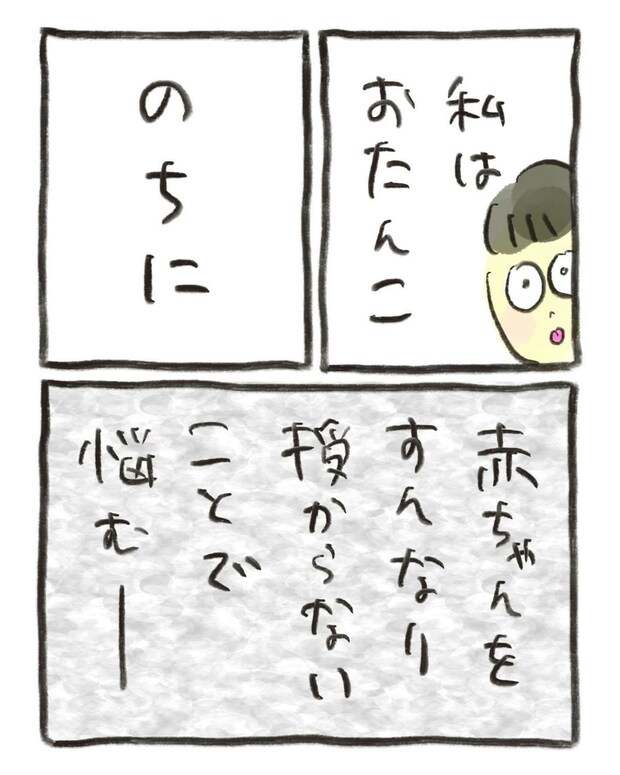 私は
おたんこ
のちに
赤ちゃんを
すんなり
授からない
ことで
悩む―